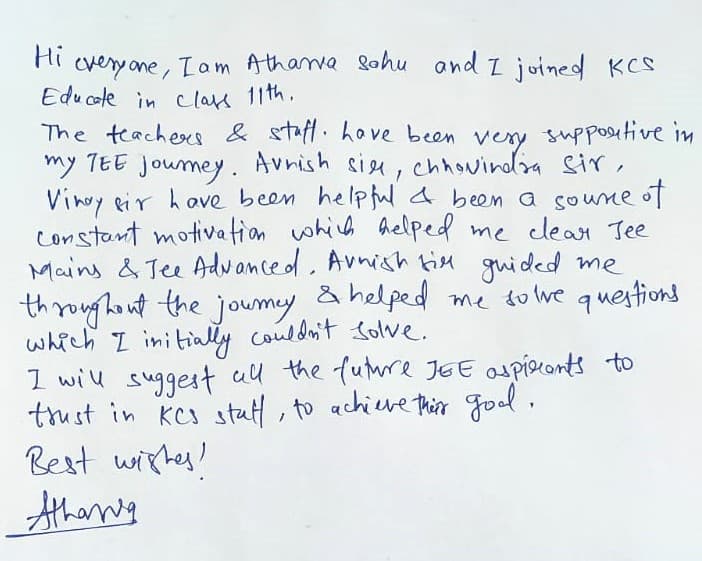 Hi everyone, I am Atharva Sahu and I joined KCS
Educate in class 11th.
The teachers & staff. have been very supportive in
my JEE Journey. Avnish sir, chhavindra sir,
Vinay sir have been helpful & been a source of
constant motivation which helped me clear Jee
Mains & Jee Advanced. Avnish sir guided me
throughout the journey & helped me solve questions
which I initially couldn't solve.
I will suggest all the future JEE aspirants to
trust in KCS staff, to achieve their goal.
Best wishes!
Atharva